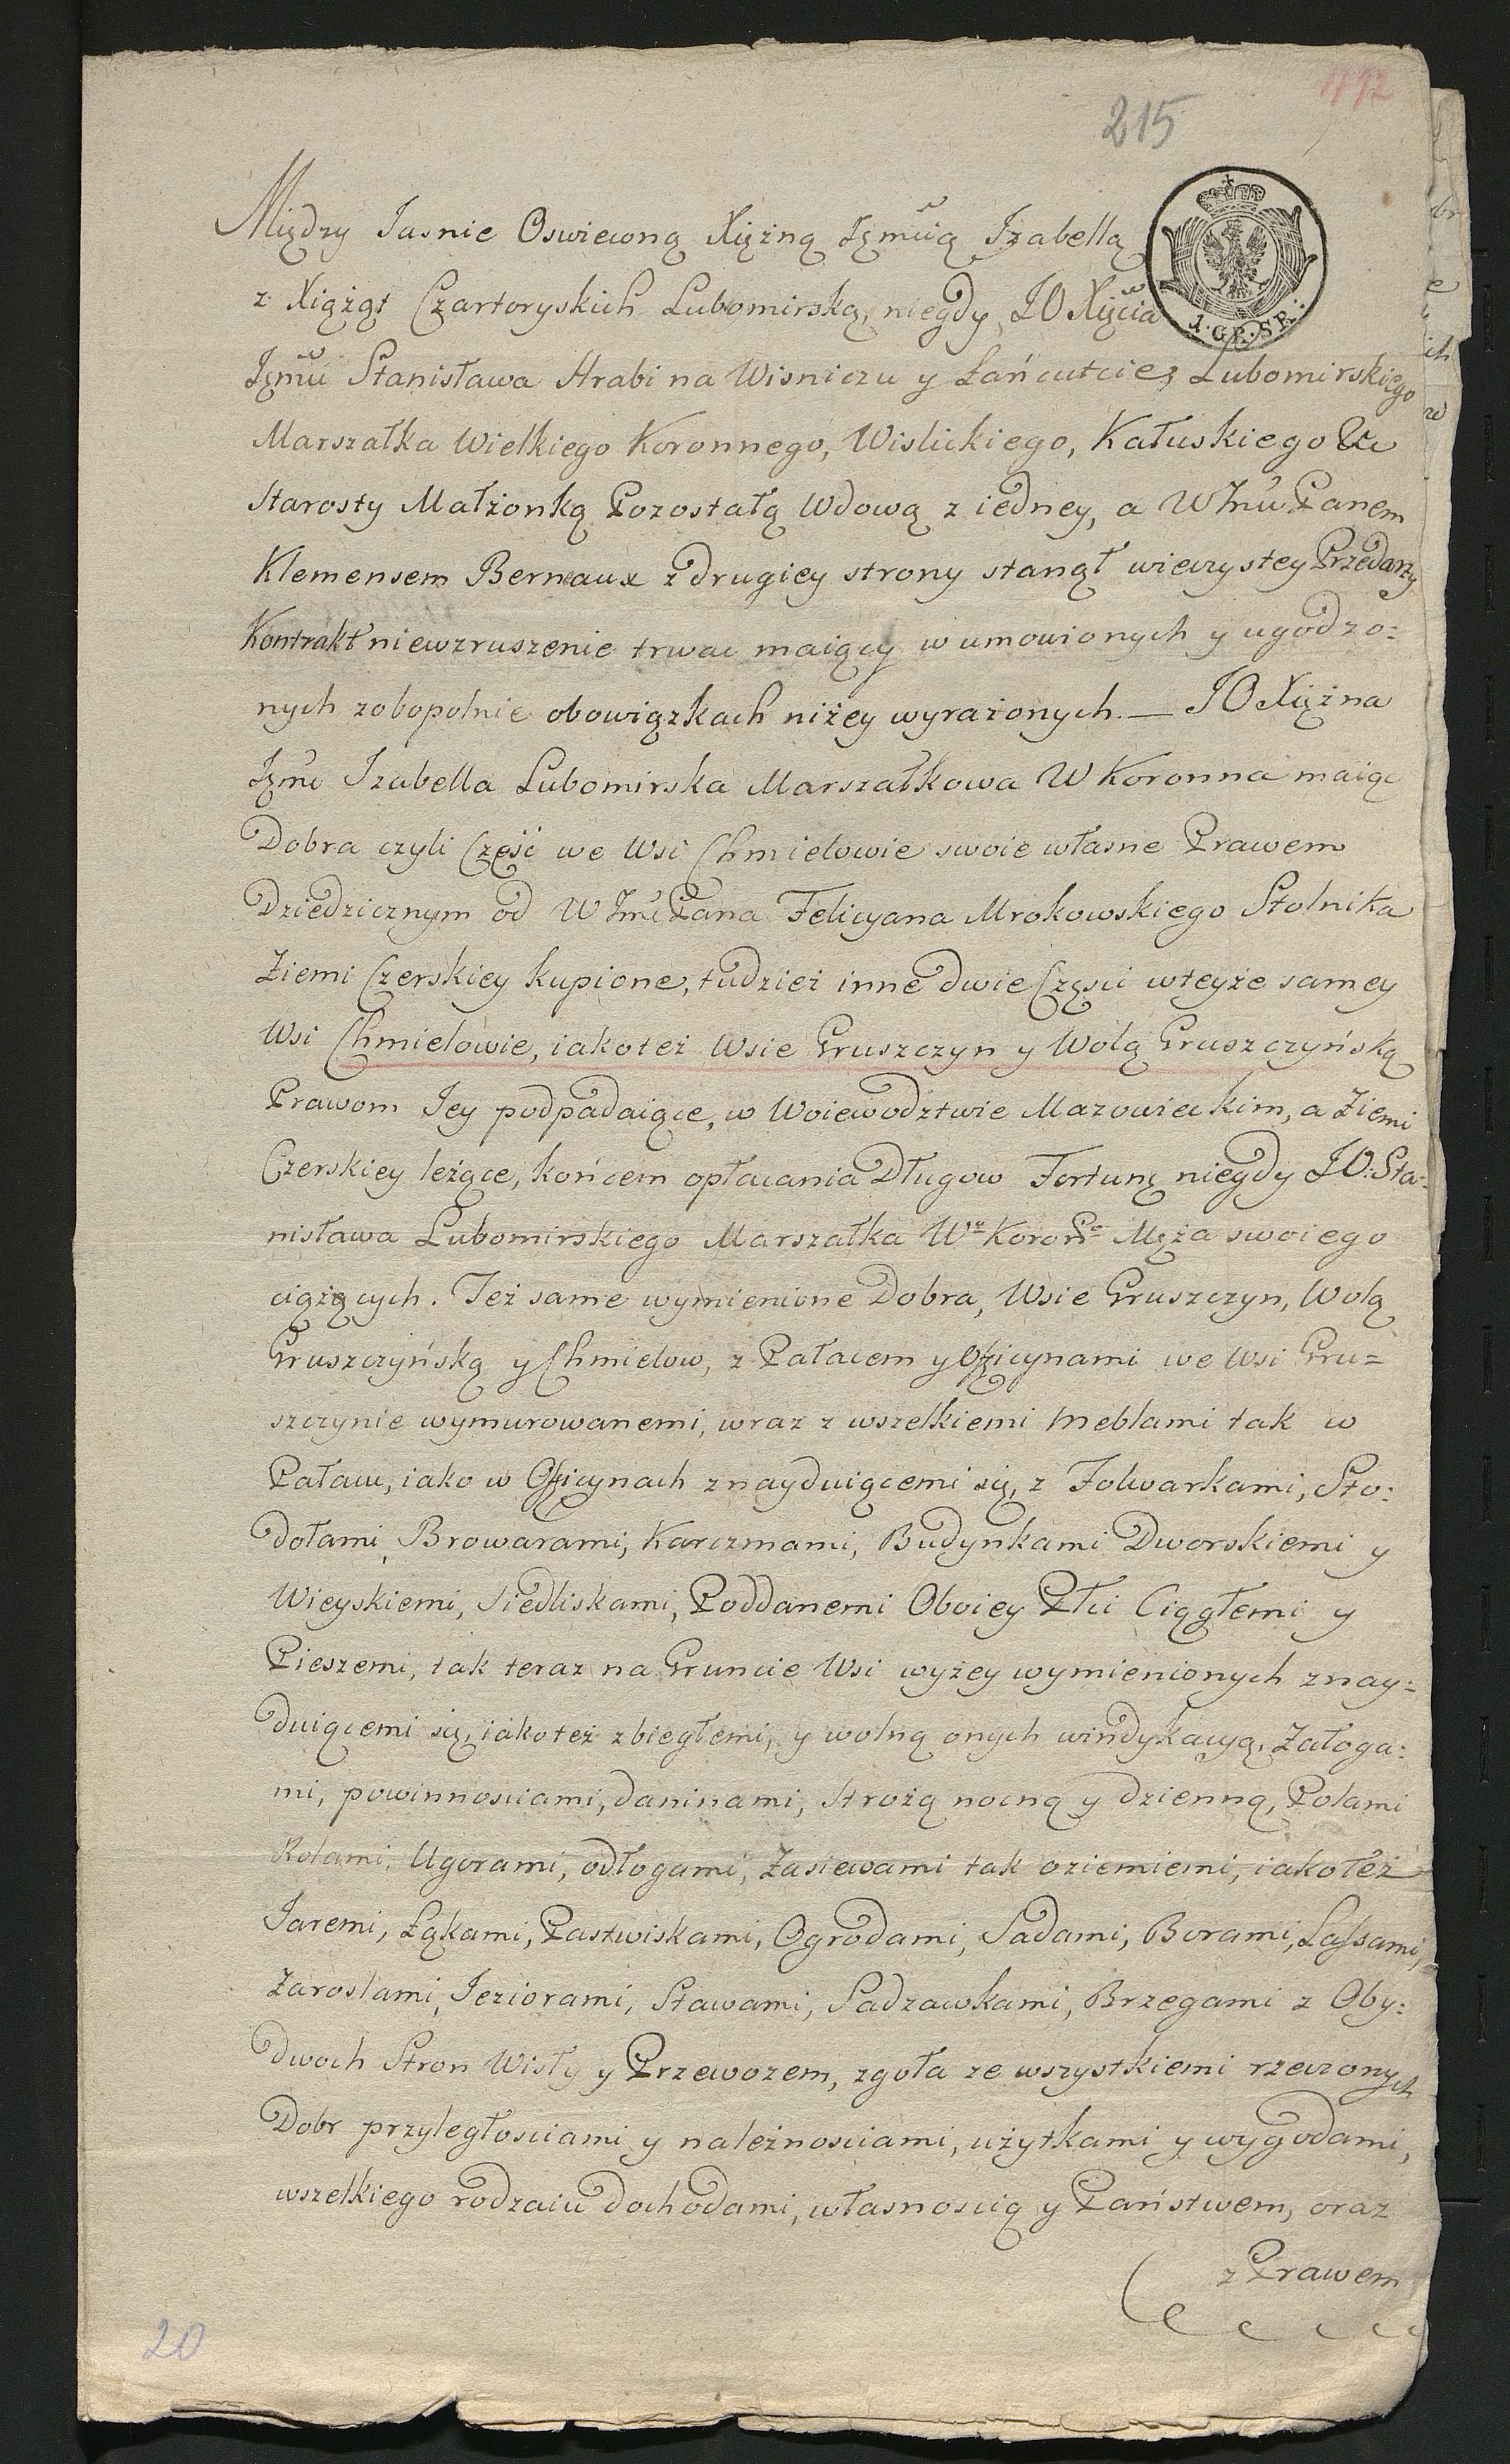 1192
215
1. GR. SR.
Między Jasnie Oswieconą Xiężną Jęmcią Jzabellą
z Xiążąt Czartoryskich Lubomirską, niegdy JO Xięcia
Jęmci Stanisława Hrabi na Wisniczu y Łańcutcie, Lubomirskiego
Marszałka Wielkiego Koronnego, Wislickiego, Kałuskiego &c
Starosty Małżonką Pozostałą Wdową z iedney, a WJmć Panem
Klemensem Bernaux z drugiey strony stanął wieczystey Przedarzy
Kontrakt niewzruszenie trwac maiący w umowionych y ugodzo=
nych zobopolnie obowiązkach niżey wyrażonych. — JO Xiężna
Jęmć Jzabella Lubomirska Marszałkowa W Koronna maiąc
Dobra czyli Część we Wsi Chmielowie swoie własne Prawem
Dziedzicznym od WJmć Pana Felicyana Mrokowskiego Stolnika
Ziemi Czerskiey kupione, tudzież inne dwie Częsci w teyże samey
Wsi Chmielowie, iako też Wsie Gruszczyn y Wolą Gruszczyńską
Prawom Jey podpadaiące, w Woiewodztwie Mazowieckim, a Ziemi
Czerskiey leżące, końcem opłacania Długow Fortunę niegdy JO. Sta=
nisława Lubomirskiego Marszałka Wo Koronго Męża swoiego
ciążących. Też same wymienione Dobra, Wsie Gruszczyn, Wolą
Gruszczyńską y Chmielow, z Pałacem y Oficynami we Wsi Gru=
szczynie wymurowanemi, wraz z wszelkiemi meblami tak w
Pałacu, iako w Oficynach znayduiącemi się, z Folwarkami, Sto=
dołami, Browarami, Karczmami, Budynkami Dworskiemi y
Wieyskiemi, Siedliskami, Poddanemi Oboiey Płci Ciągłemi y
Pieszemi, tak teraz na Gruncie Wsi wyżey wymienionych znay=
duiącemi się, iako też zbiegłemi, y wolną onych windykacyą, Załoga=
mi, powinnosciami, daninami, Strożą nocną y dzienną, Polami
Rolami, Ugorami, odłogami, Zasiewami tak oziemiemi, iako też
Jaremi, Łąkami, Pastwiskami, Ogrodami, Sadami, Borami, Lassami,
Zaroslami, Jeziorami, Stawami, Sadzawkami, Brzegami z Oby=
dwoch Stron Wisły y Przewozem, zgoła ze wszystkiemi rzeczonych
Dobr przyległosciami y należnosciami, użytkami y wygodami,
wszelkiego rodzaiu dochodami, własnoscią y Państwem, oraz
z Prawem
20